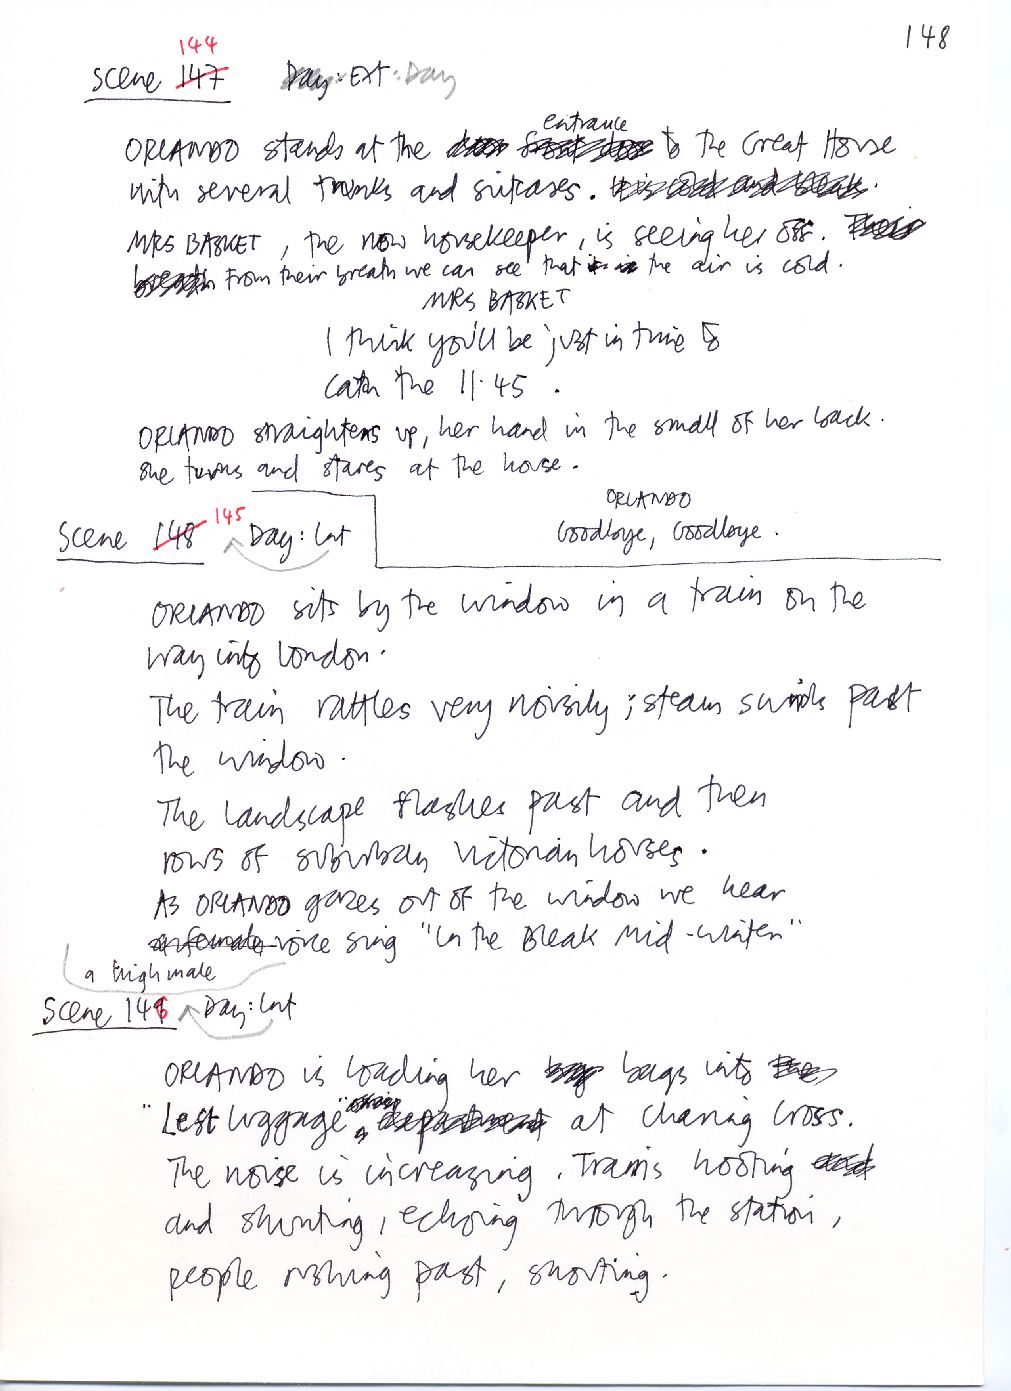 148
144
Scene 147 Day: EXT: Day
entrance
ORLANDO stands at the front door to the Great House
with several trunks and suitcases. It is cold and bleak.
MRS BASKET, the now housekeeper, is seeing her off. Their
breath From their breath we can see that it is the air is cold.
MRS BASKET
I think you'll be just in time to
catch the 11.45.
ORLANDO straightens up, her hand in the small of her back.
She turns and stares at the house.
ORLANDO
Goodbye, Goodbye.
Scene 148 145 Day: Int
ORLANDO sits by the window in a train on the
way into London.
The train rattles very noisily; steam swirls past
the window.
The landscape flashes past and then
rows of suburban Victorian houses.
As ORLANDO gazes out of the window we hear
a female voice sing "In the Bleak Mid-Winter"
a high male
Scene 146 Day: Int
ORLANDO is loading her bags into
"Left Luggage" department at Charing Cross.
The noise is increasing. Trains hooting
and shunting, echoing through the station,
people rushing past, shouting.